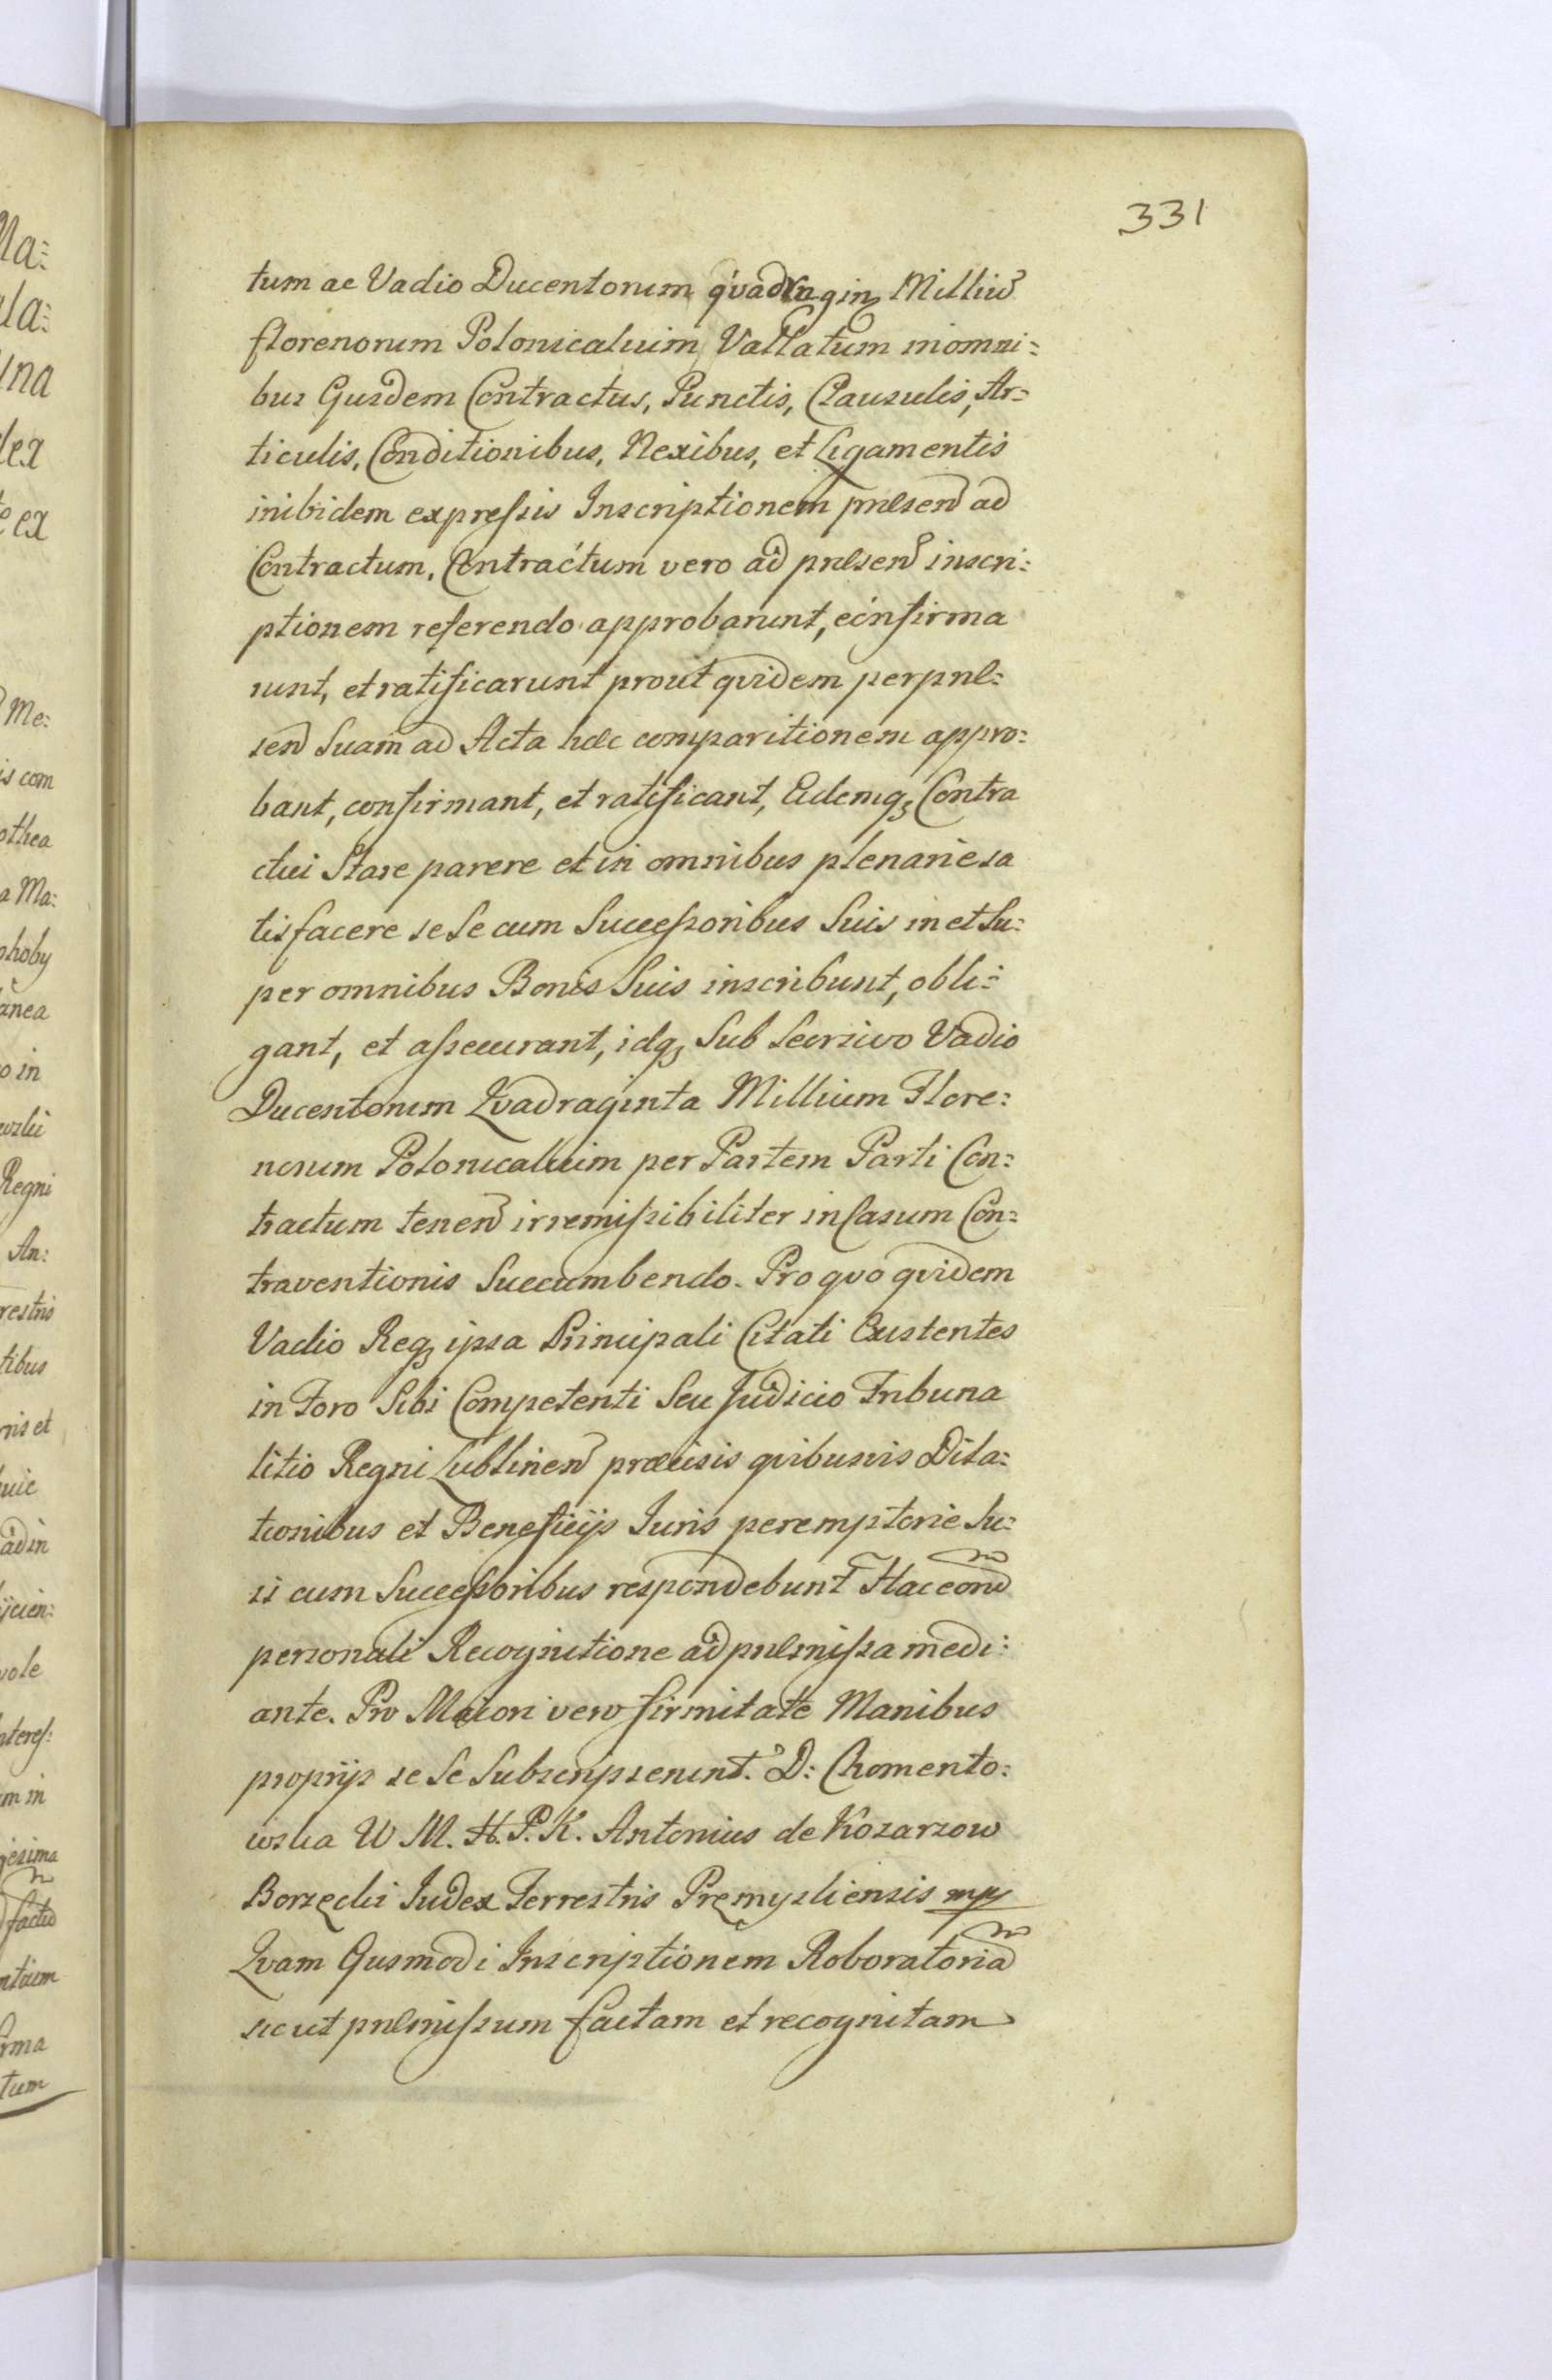 331
tum ac Vadio Ducentorum qvadragin Milliū
florenorum Polonicaliuim Vallatum inomni=
bus Ejusdem Contractus, Punctis, Clausulis, Ar=
ticulis, Conditionibus, Nexibus, et Ligamentis
inibidem expressis Inscriptionem præsen ad
Contractum, Contractum vero ad præsen inscri=
ptionem referendo approbarunt, confirma
runt, et ratificarunt prout qvidem per præ=
sen Suam ad Acta hæc comparitionem appro=
bant, confirmant, et ratificant, Eidemq; Contra
ctui Stare parere et in omnibus plenarie sa
tisfacere se Se cum Successoribus Suis in et Su=
per omnibus Bonis Suis inscribunt, obli=
gant, et assecurant, idq; Sub Seorsivo Vadio
Ducentorum Qvadraginta Millium Flore=
norum Polonicalium per Partem Parti Con=
tractum tenen irremissibiliter in Casum Con=
traventionis Succumbendo. Pro qvo qvidem
Vadio Req; ipsa Principali Citati Existentes
in Foro Sibi Competenti Seu Judicio Tribuna
litio Regni Lublinen præcisis qvibusvis Dila=
tionibus et Beneficijs Iuris peremptorie Su=
is cum Successoribus respondebunt Hac eorūd
personali Recognitione ad præmissa medi=
ante. Pro Maiori vero firmitate Manibus
proprijs se Se Subscripserunt. D: Chomento=
wska W M. H. P. K. Antonius de Kozarzow
Borzęcki Iudex Terrestris Premysliensis mp
Qvam Ejusmodi Inscriptionem Roboratoriā
sicut præmissum factam et recognitam